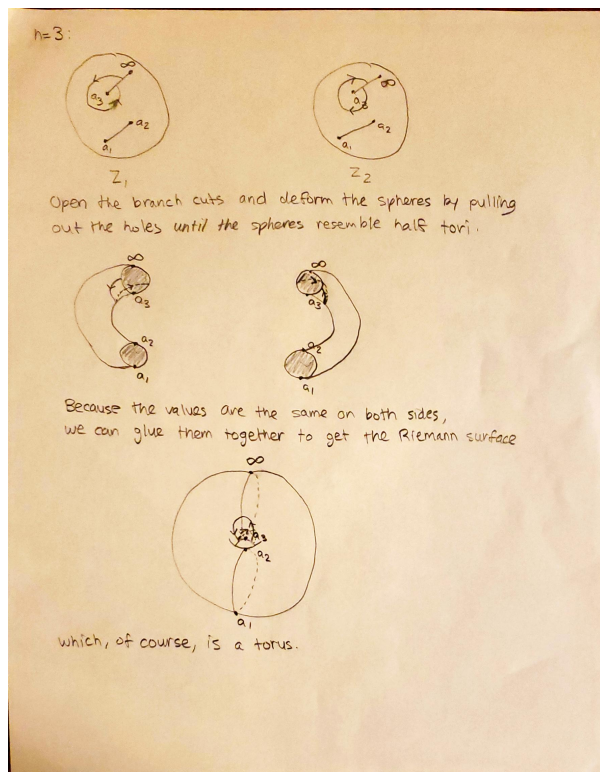 n=3:
∞ ∞
a₃ a₃
a₂ a₂
a₁ a₁
Z₁ Z₂
Open the branch cuts and deform the spheres by pulling
out the holes until the spheres resemble half tori.
∞ ∞
a₃ a₃
a₂ a₂
a₁ a₁
Because the values are the same on both sides,
we can glue them together to get the Riemann surface
∞
a₃
a₂
a₁
which, of course, is a torus.